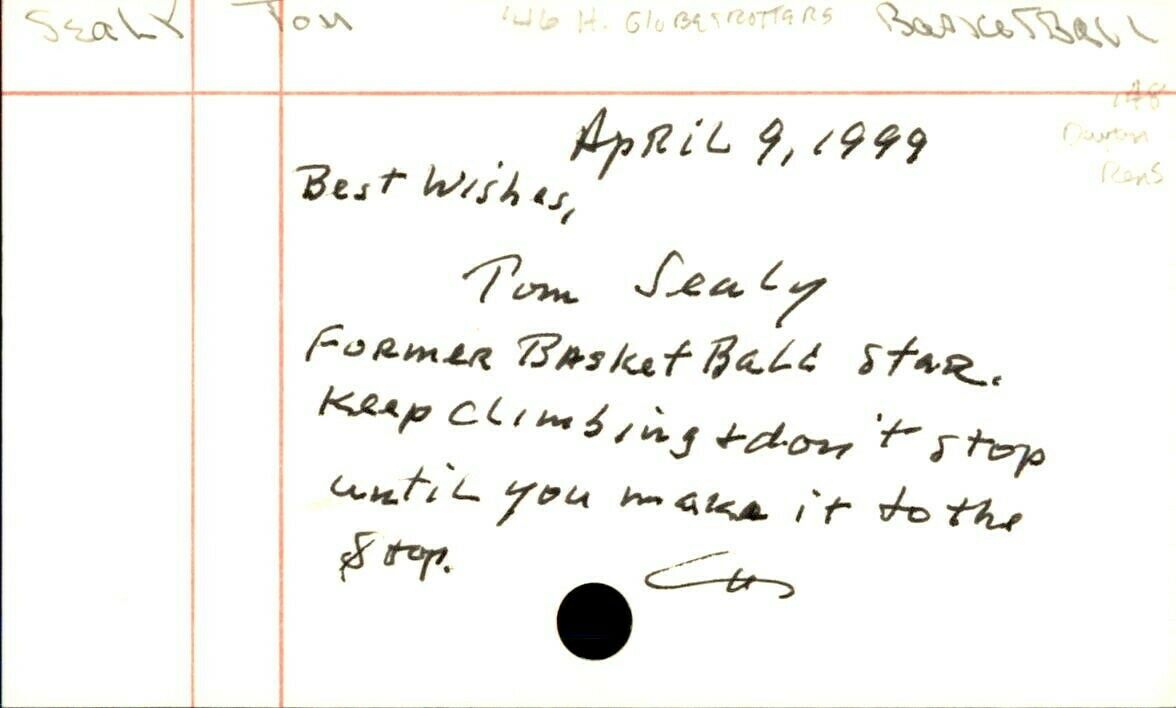 Sealy Tom '46 H. GLOBETROTTERS BASKETBALL
'48
Dayton
Rens
April 9, 1999
Best Wishes,
Tom Sealy
Former BasketBall Star.
Keep Climbing + don't stop
until you make it to the
top.